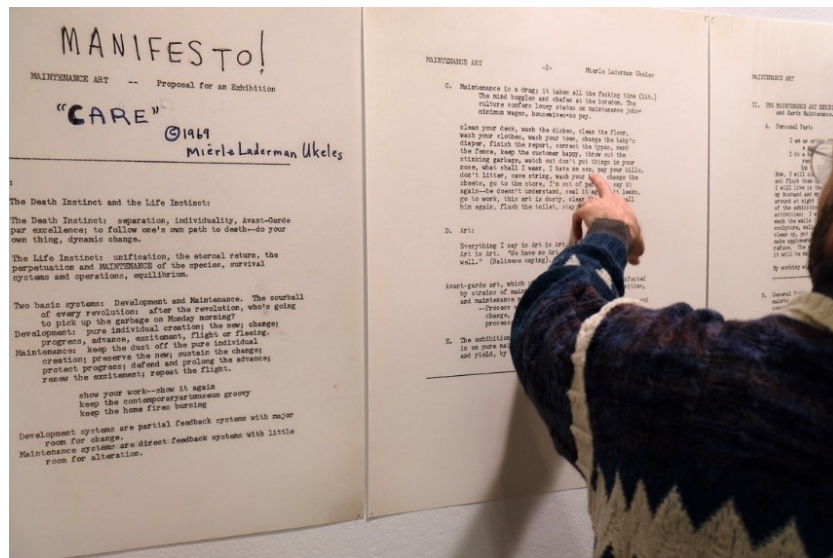 MANIFESTO!
MAINTENANCE ART -- Proposal for an Exhibition
"CARE"
©1969
Mierle Laderman Ukeles
:
The Death Instinct and the Life Instinct:
The Death Instinct: separation, individuality, Avant-Garde
par excellence; to follow one's own path to death--do your
own thing, dynamic change.
The Life Instinct: unification, the eternal return, the
perpetuation and MAINTENANCE of the species, survival
systems and operations, equilibrium.
Two basic systems: Development and Maintenance. The sourball
of every revolution: after the revolution, who's going
to pick up the garbage on Monday morning?
Development: pure individual creation; the new; change;
progress, advance, excitement, flight or fleeing.
Maintenance: keep the dust off the pure individual
creation; preserve the new; sustain the change;
protect progress; defend and prolong the advance;
renew the excitement; repeat the flight.
show your work--show it again
keep the contemporaryartmuseum groovy
keep the home fires burning
Development systems are partial feedback systems with major
room for change.
Maintenance systems are direct feedback systems with little
room for alteration.
MAINTENANCE ART -2- Mierle Laderman Ukeles
C. Maintenance is a drag; it takes all the fucking time (lit.)
The mind boggles and chafes at the boredom. The
culture confers lousy status on maintenance jobs-
minimum wages, housewives-no pay.
clean your desk, wash the dishes, clean the floor,
wash your clothes, wash your toes, change the baby's
diaper, finish the report, correct the typos, mend
the fence, keep the customer happy, throw out the
stinking garbage, watch out don't put things in your
nose, what shall I wear, I have no sox, pay your bills,
don't litter, save string, wash your change the
sheets, go to the store, I'm out of say it
again--he doesn't understand, seal it leaks,
go to work, this art is dusty, clear call
him again, flush the toilet, stay
D. Art:
Everything I say is Art is
Art is Art. "We have no Art
well." (Balinese saying).
Avant-garde art, which infected
by strains of
and maintenance
--Process
change,
process
E. The exhibition
is on pure
and yield, by
MAINTENANCE ART
II. THE MAINTENANCE ART
and Earth Maintenance.
A. Personal Part:
I am an
I do a
Now, I will
and flush them
I will live in the
my husband and my
around at night
of the exhibition
activities: I
wash the walls
clean up, put
refuse. The
it will be
My working